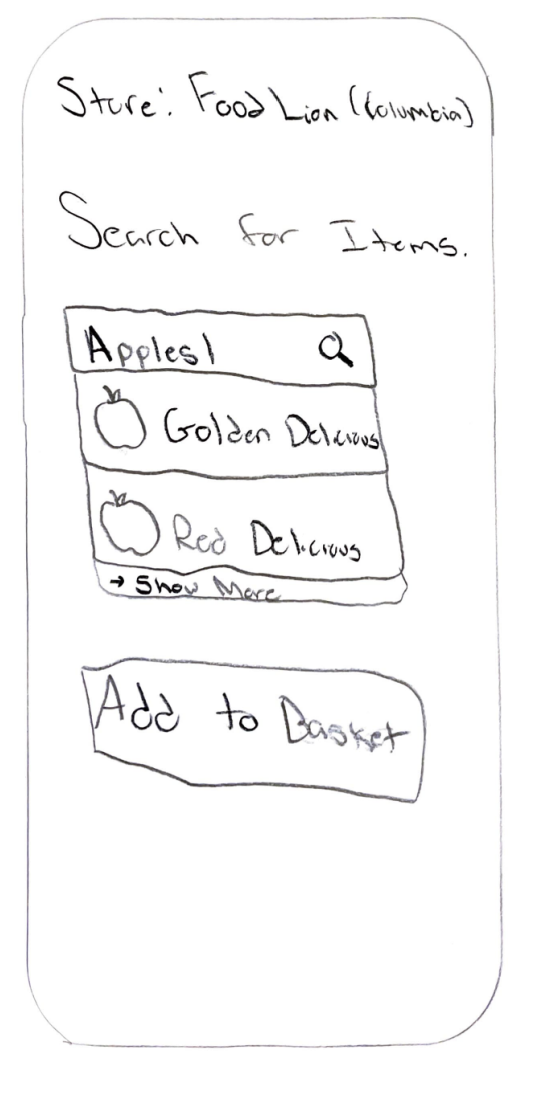 Store: Food Lion (Columbia)
Search for Items.
Apples|
Golden Delicious
Red Delicious
→ Show More
Add to Basket